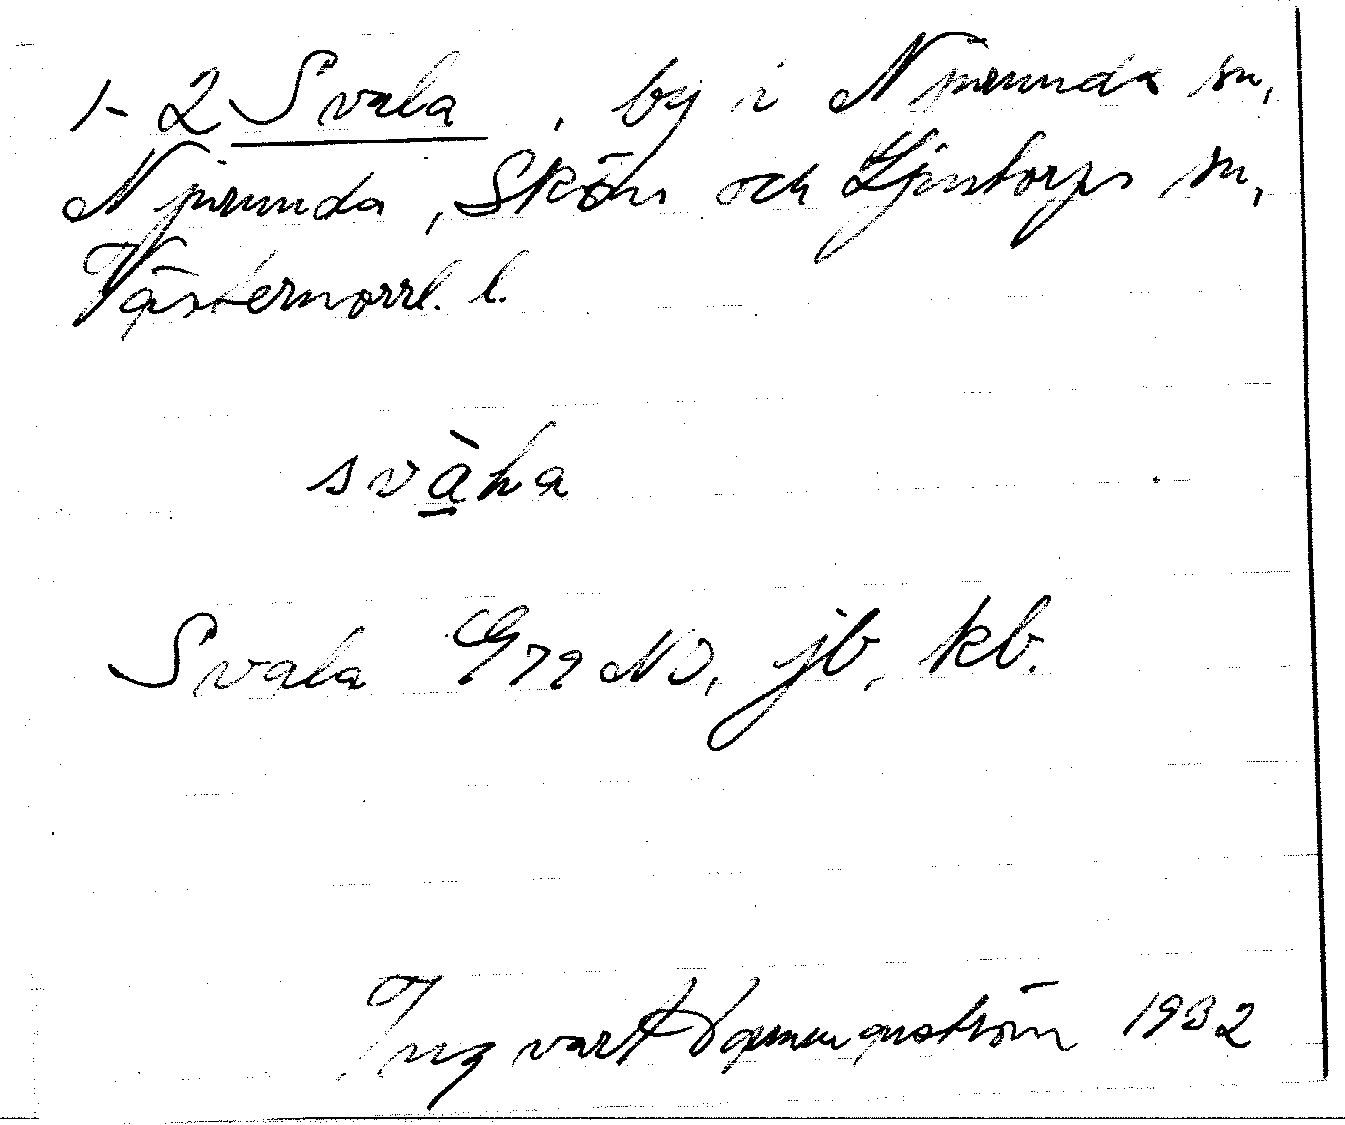 1-2 Svala, by i Njurunda sn,
Njurunda, Sköns och Ljustorps sn,
Västernorrl. l.
svàha
Svala G79ND, jb, kb.
Ingvar 1932